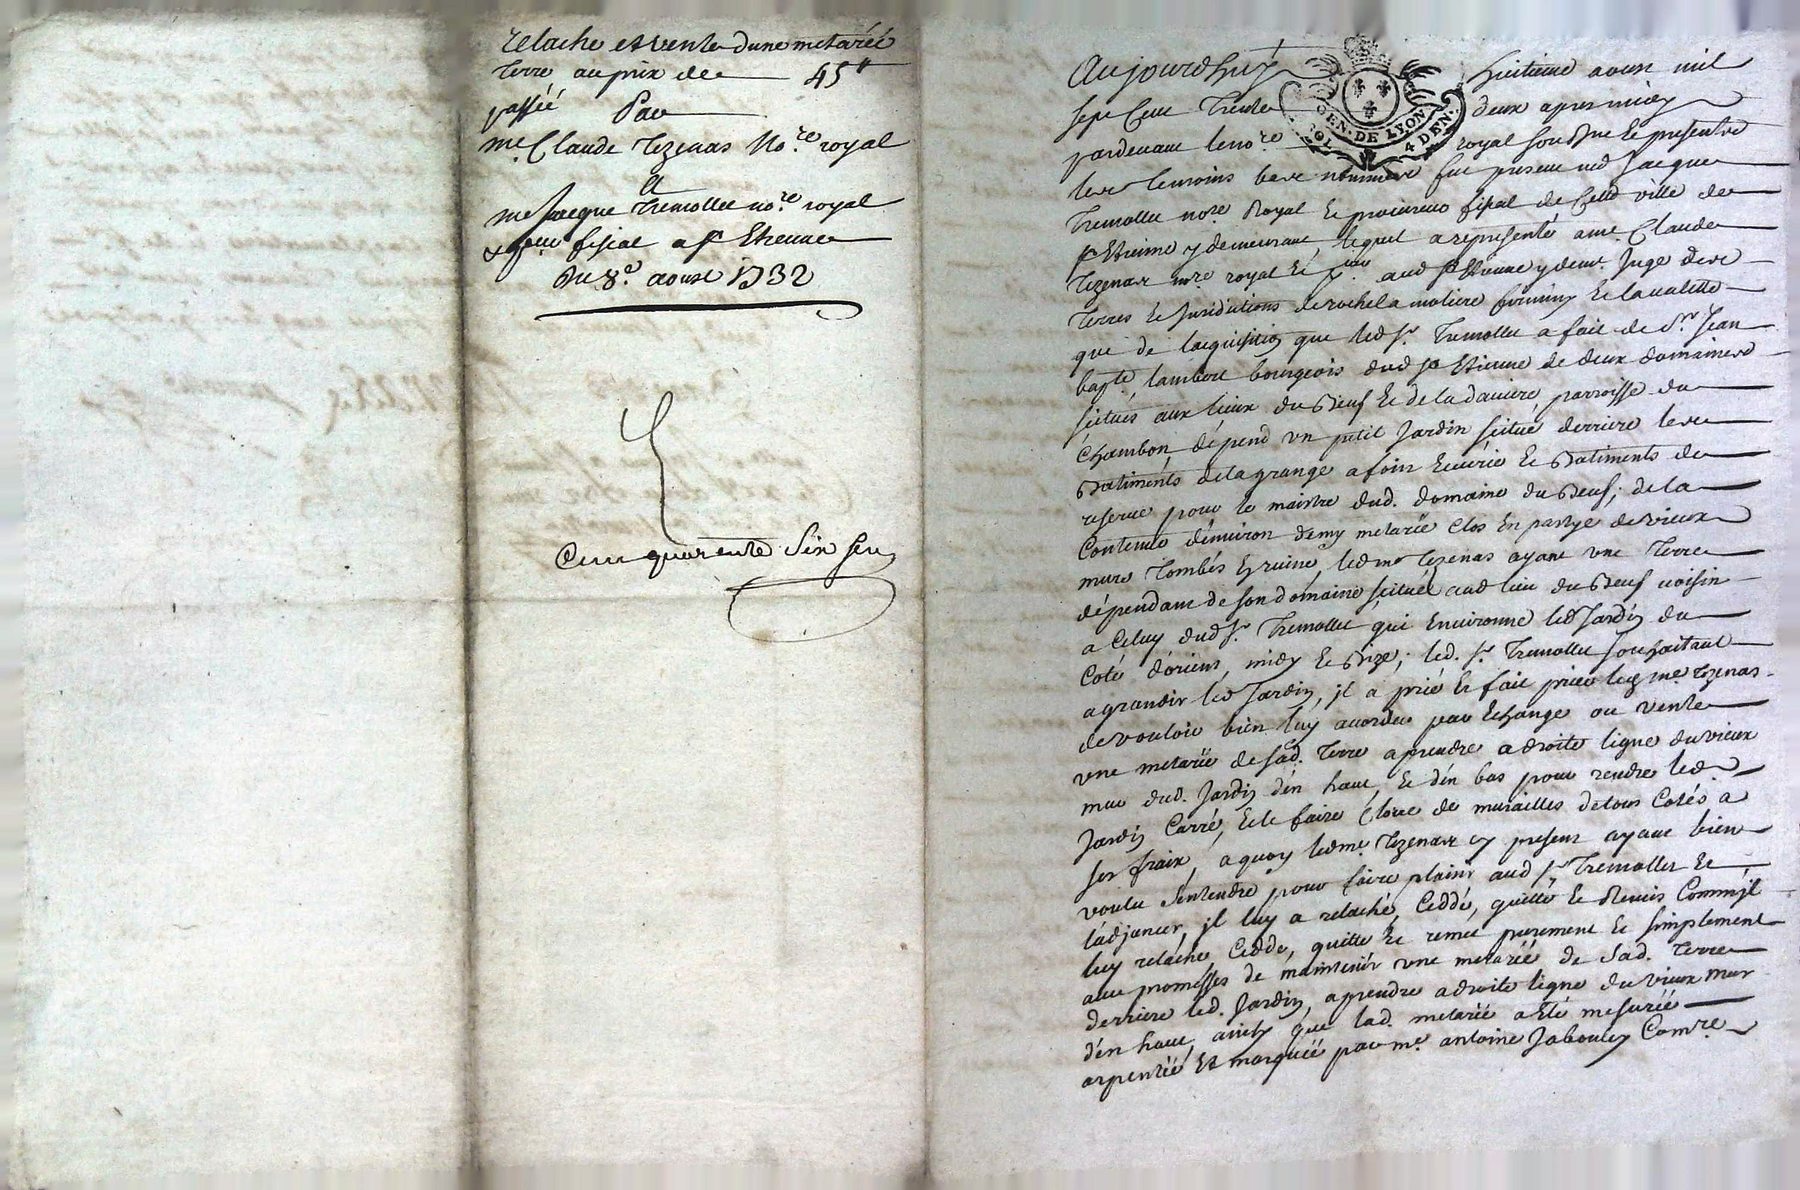 relache et vente dune metarèé
Terre au prix de 45#
passéé Par
me. Claude Tezenas No.re royal
a
me Jacque Tremollet no.re royal
& p.eur fiscal a St Etienne
Du 8.e aoust 1732
Cent quarente six
Aujourdhuy huitieme aoust mil
sept Cent Trente deux apres midy
GEN. DE LYON
4 DEN.
pardevant le no.re royal sousigné et presents
les temoins bas nommés fut present me Jacque
Tremollet no.re Royal et procureur fiscal de Cette ville de
St Etienne y demeurant, lequel a representé a me. Claude
Tezenas no.re royal et p.eur aud St Etienne y dem.t Juge des
Terres et Juridictions de roche la moliere firminy et la valette
que de lacquisition que led Sr. Tremollet a fait de Sr. Jean
bapte lambert bourgeois dud St Etienne de deux domaines
scitués aux lieux du Beuf et de la daurere, parroisse du
Chambon, dépend un petit Jardin scitué derriere les
Batiments de la grange a foin Ecurie et Batiments de
reserve pour le maistre dud. domaine du Beuf, de la
Contenue dénviron demy metarèe Clos En partye de vieux
murs Tombés En ruine, led me Tezenas ayant une Terre
dépendant de son domaine scitué aud lieu du Beuf voisin
a Celuy dud Sr. Tremollet qui Environne led Jardin du
Coté dórient, midy et Bize; led. Sr. Tremollet souhaitant
agrandir led Jardin, jl a prié et fait prier led me Tezenas
de vouloir bien luy accorder par Echange ou vente
une metarèe de sad. Terre a prendre a droite ligne du vieux
mur dud. Jardin dén haut, et dén bas pour rendre led.
Jardin Carré, et le faire Clore de murailles de tous Cotés a
ses fraix, a quoy led me. Tezenas cy present ayant bien
voulu Sentendre pour faire plaisir aud Sr Tremollet et
ládjancer, jl luy a relaché, Ceddé, quitté et Remis Comme jl
luy relache Cedde, quitte et remet purement et simplement
avec promesses de maintenir une metarèé de sad. Terre
derriere led. Jardin, a prendre a droite ligne du vieux mur
dén haut, ainsy que lad. metarèé a Eté mesurée
arpentéé Et marquéé par me. antoine Jabouley Com.re